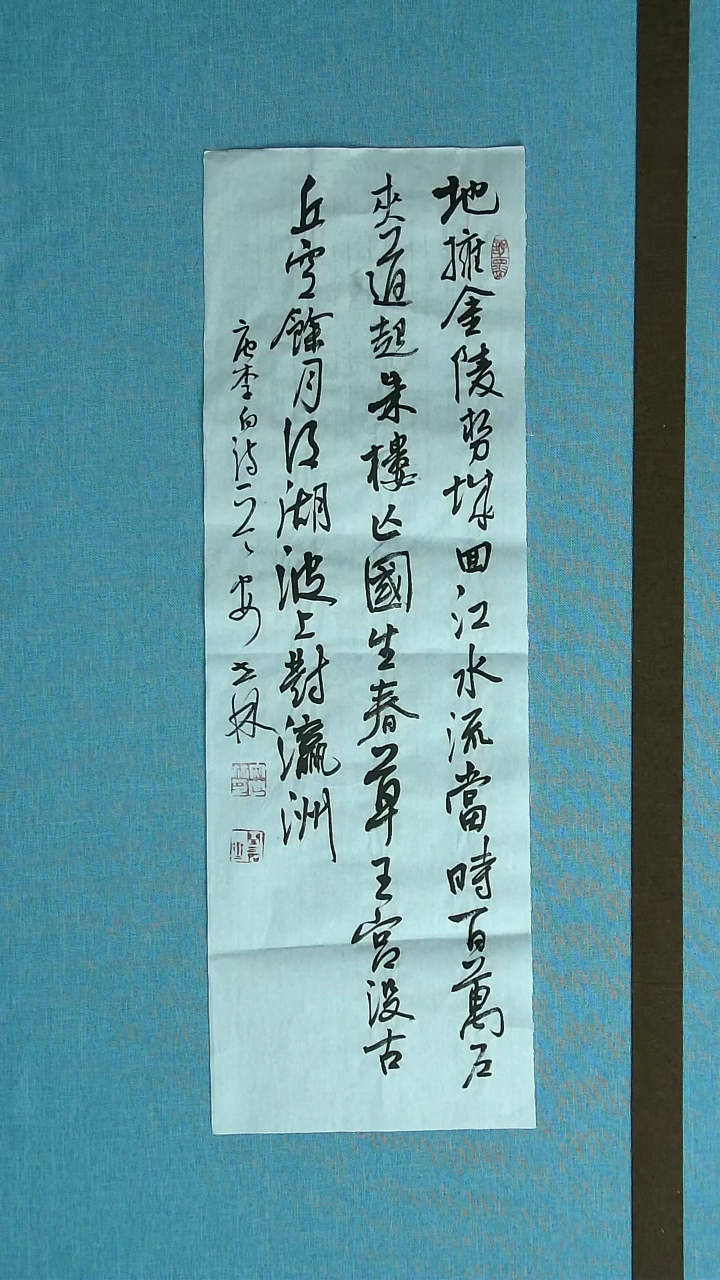 地擁金陵勢城回江水流當時百萬戶
夾道起朱樓亡國生春草王宮沒古
丘空餘月後湖波上對瀛洲
唐李白詩